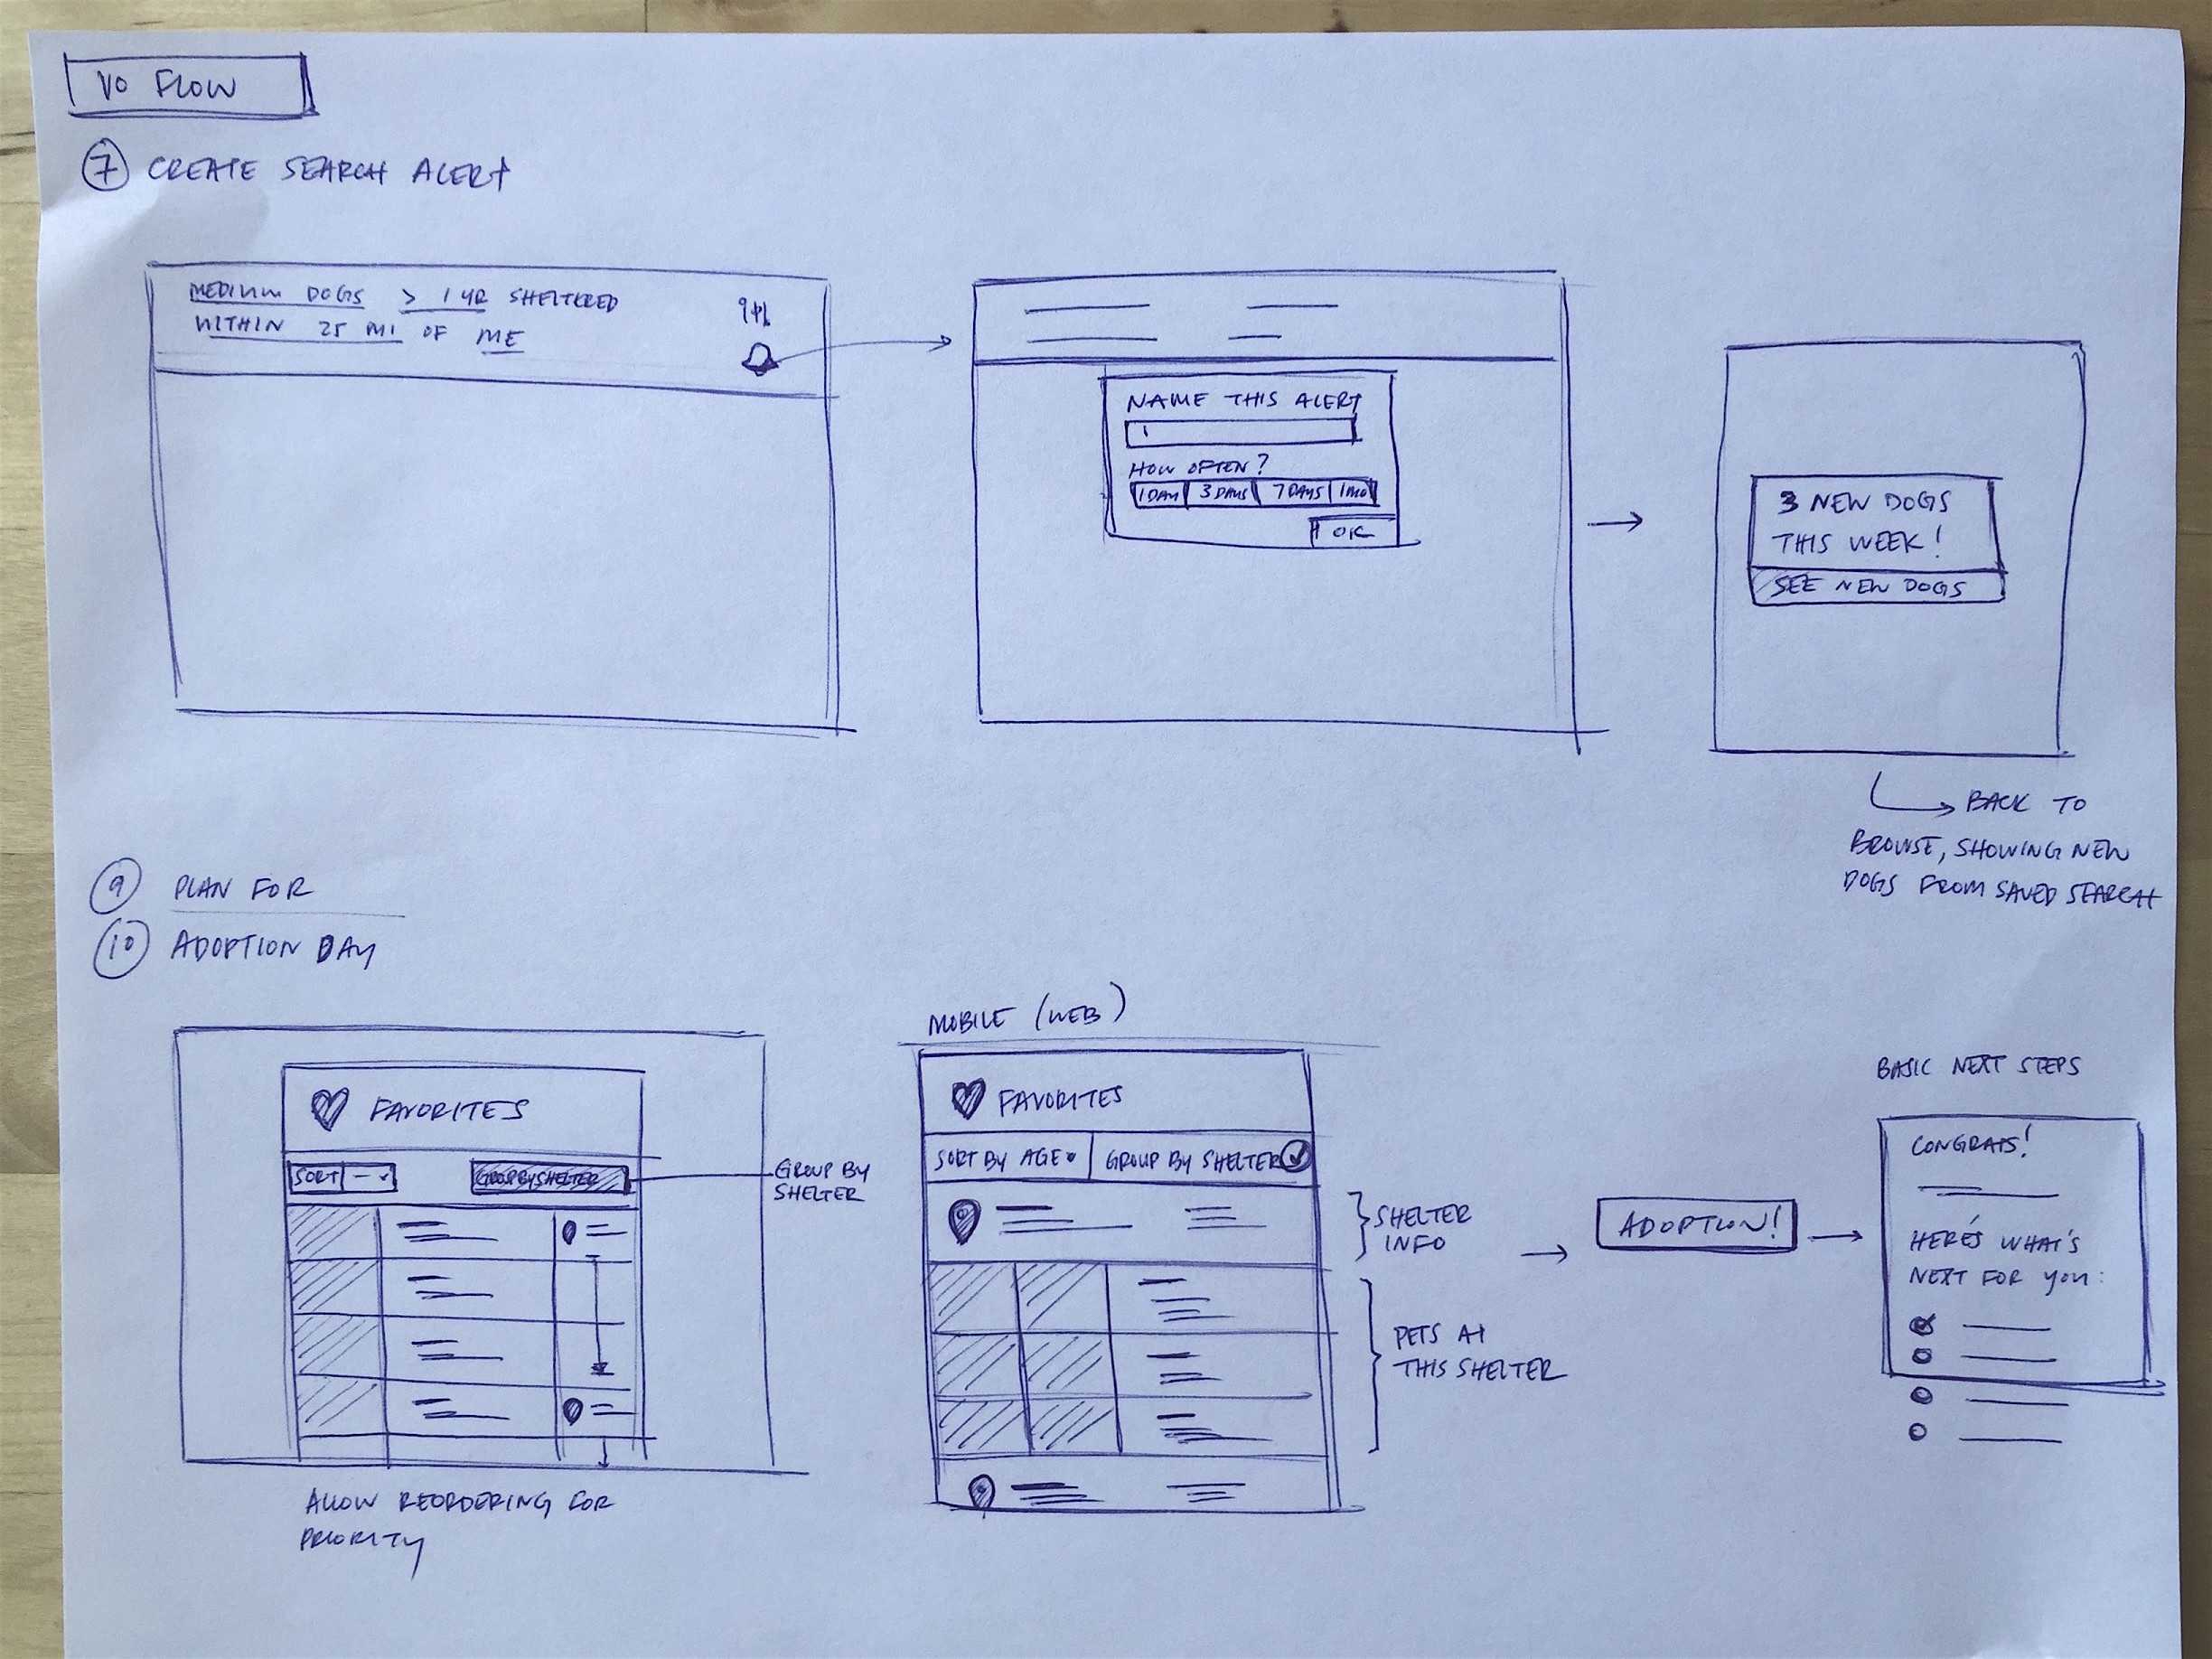 V0 FLOW
7 CREATE SEARCH ALERT
MEDIUM DOGS > 1 YR SHELTERED
WITHIN 25 MI OF ME
NAME THIS ALERT
HOW OFTEN?
1 DAY 3 DAYS 7 DAYS 1 MO
OK
3 NEW DOGS
THIS WEEK!
SEE NEW DOGS
BACK TO
BROWSE, SHOWING NEW
DOGS FROM SAVED SEARCH
9 PLAN FOR
10 ADOPTION DAY
FAVORITES
SORT
GROUP BY SHELTER
GROUP BY
SHELTER
ALLOW REORDERING FOR
PRIORITY
MOBILE (WEB)
FAVORITES
SORT BY AGE
GROUP BY SHELTER
SHELTER
INFO
PETS AT
THIS SHELTER
ADOPTION!
BASIC NEXT STEPS
CONGRATS!
HERE'S WHAT'S
NEXT FOR YOU: